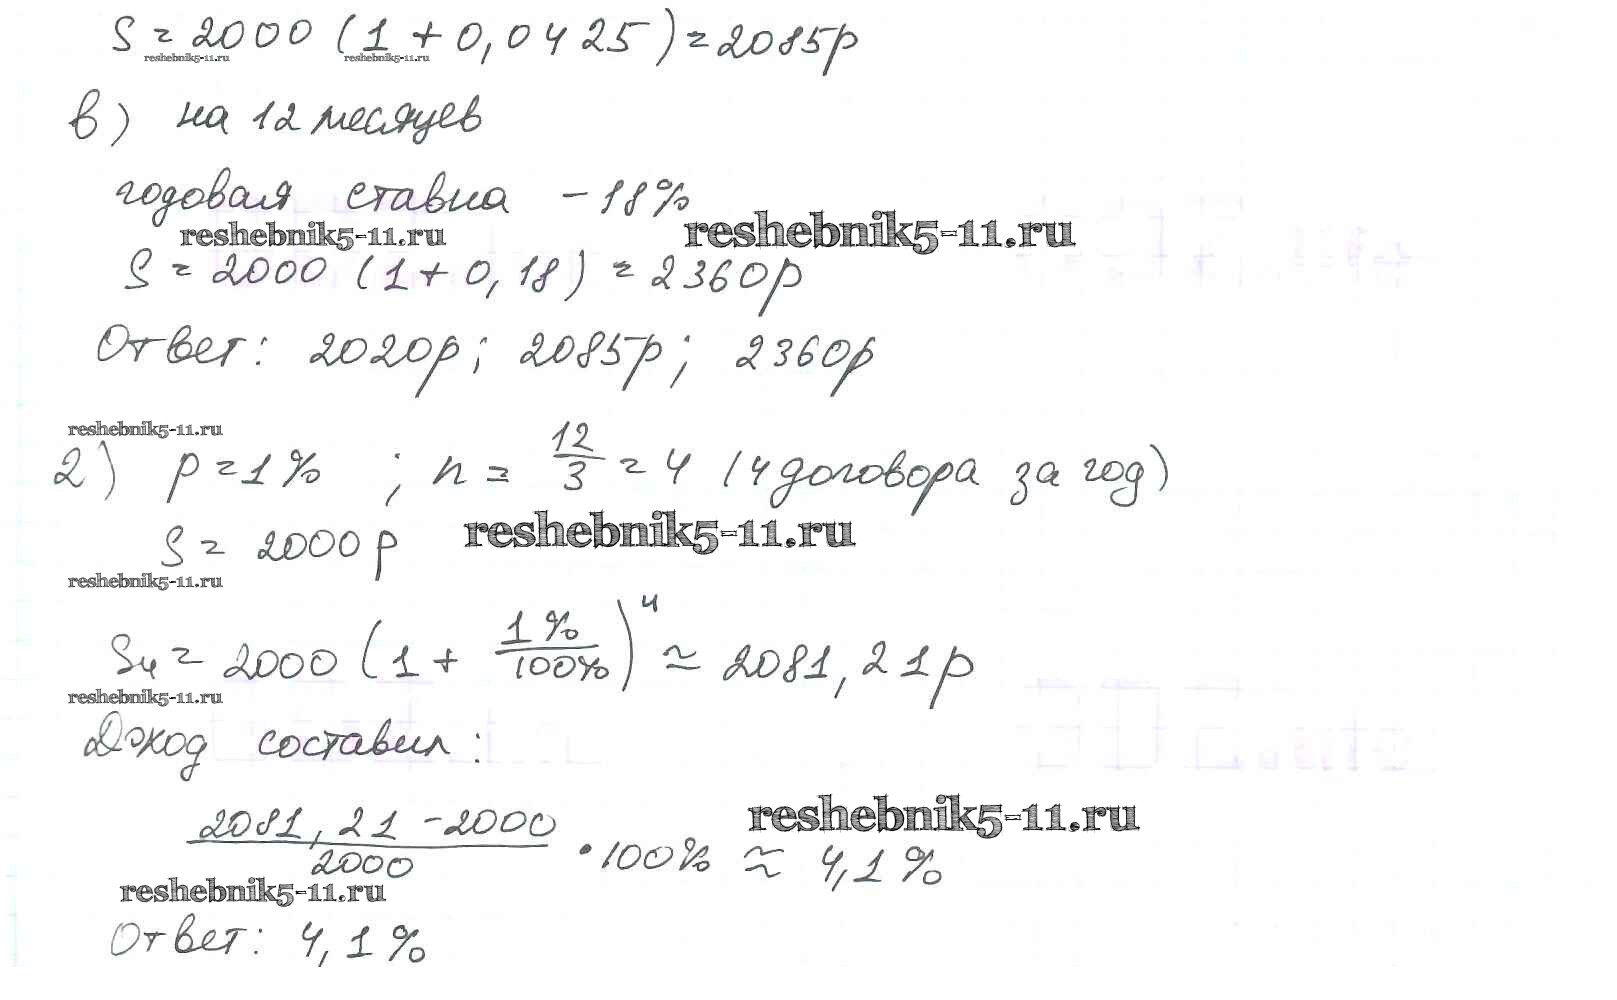 S = 2000 (1 + 0,0425) = 2085р
reshebnik5-11.ru reshebnik5-11.ru
в) на 12 месяцев
годовая ставка - 18%
reshebnik5-11.ru reshebnik5-11.ru
S = 2000 (1 + 0,18) = 2360р
Ответ: 2020р; 2085р; 2360р
reshebnik5-11.ru
2) p = 1% ; n = 12/3 = 4 (4 договора за год)
reshebnik5-11.ru
S = 2000р
reshebnik5-11.ru
S₄ = 2000 (1 + 1%/100%)⁴ ≈ 2081,21р
reshebnik5-11.ru
Доход составил:
reshebnik5-11.ru
2081,21 - 2000/2000 · 100% ≈ 4,1%
reshebnik5-11.ru
Ответ: 4,1%